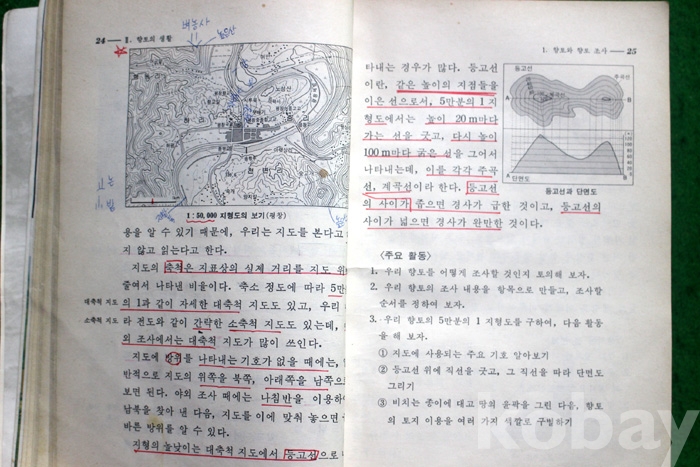 24 — Ⅱ. 향토의 생활
1 : 50,000 지형도의 보기(평창)
용을 알 수 있기 때문에, 우리는 지도를 본다고
지 않고 읽는다고 한다.
지도의 축척은 지표상의 실제 거리를 지도 위
줄여서 나타낸 비율이다. 축소 정도에 따라 5만
대축척 지도
의 1과 같이 자세한 대축척 지도도 있고, 우리
소축척 지도
라 전도와 같이 간략한 소축척 지도도 있는데,
외 조사에서는 대축척 지도가 많이 쓰인다.
지도에 방위를 나타내는 기호가 없을 때에는,
반적으로 지도의 위쪽을 북쪽, 아래쪽을 남쪽으
보면 된다. 야외 조사 때에는 나침반을 이용하
남북을 찾아 낸 다음, 지도를 이에 맞춰 놓으면
바른 방위를 알 수 있다.
지형의 높낮이는 대축척 지도에서 등고선으로
1. 향토와 향토 조사 — 25
타내는 경우가 많다. 등고선
이란, 같은 높이의 지점들을
이은 선으로서, 5만분의 1 지
형도에서는 높이 20m마다
가는 선을 긋고, 다시 높이
100m마다 굵은 선을 그어서
나타내는데, 이를 각각 주곡
선, 계곡선이라 한다. 등고선
의 사이가 좁으면 경사가 급한 것이고, 등고선의
사이가 넓으면 경사가 완만한 것이다.
등고선
주곡선
계곡선
A
B
A 단면도
B
등고선과 단면도
〈주요 활동〉
1. 우리 향토를 어떻게 조사할 것인지 토의해 보자.
2. 우리 향토의 조사 내용을 항목으로 만들고, 조사할
순서를 정하여 보자.
3. 우리 향토의 5만분의 1 지형도를 구하여, 다음 활동
을 해 보자.
① 지도에 사용되는 주요 기호 알아보기
② 등고선 위에 직선을 긋고, 그 직선을 따라 단면도
그리기
③ 비치는 종이에 대고 땅의 윤곽을 그린 다음, 향토
의 토지 이용을 여러 가지 색깔로 구별하기
kobay